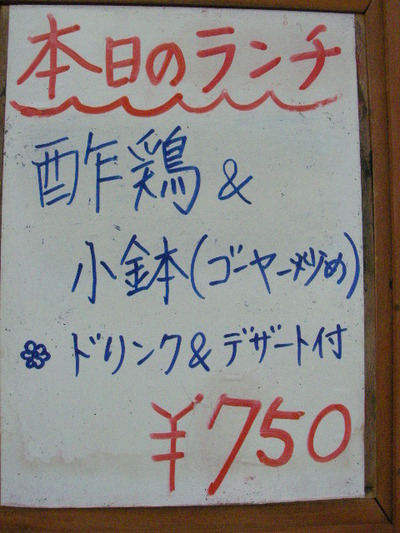 本日のランチ
酢鶏 &
小鉢(ゴーヤー炒め)
ドリンク & デザート付
¥750